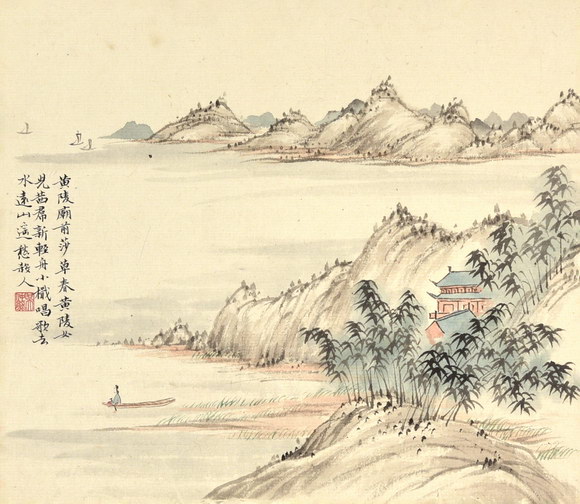 黃陵廟前莎草春黃陵女
兒茜帬新輕舟小檝唱歌去
水遠山長愁殺人